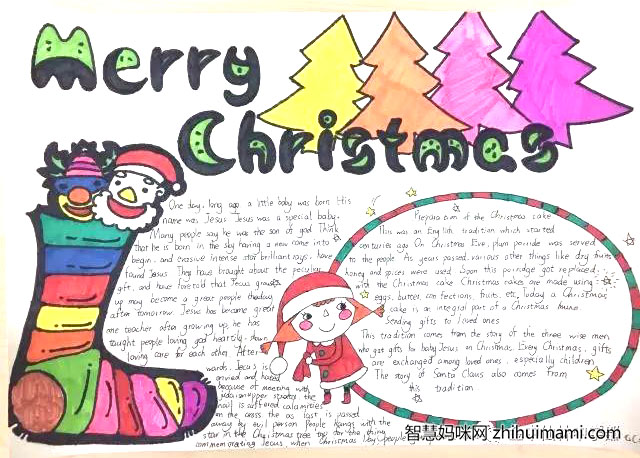 Merry
Christmas
One day, long ago a little baby was born His
name was Jesus Jesus was a special baby.
Many people say he was the son of god Think
that he is born in the sky having a new come into
begin, and evasive intense star brilliant rays, have
found Jesus They have brought about the peculiar
gift, and have foretold that Jesus
up may become a great people
after tomorrow Jesus has become great
one teacher after growing up, he has
taught people loving god heartily, shown
loving care for each other After
wards, Jesus is
and hated
because of meeting with
supper
nail is suffered calamities
on the cross the last is passed
away by evil person People hangs with the
star in the Christmas tree top for the thing
Jesus when Christmas
Preparation of the Christmas cake
This was an English tradition which started
centuries ago On Christmas Eve, plum porridge was served
to the people As years passed, various other things like dry fruits
honey and spices were used Soon this porridge got replaced
with the Christmas cake Christmas cakes are made using
eggs, butter, confections, fruits, etc, Today a Christmas
cake is an integral part of a Christmas
Sending gifts to loved ones
This tradition comes from the story of the three wise men
who got gifts for baby Jesus on Christmas Every Christmas, gifts
are exchanged among loved ones, especially children
The story of Santa Claus also comes from
this tradition
智慧妈咪网 zhihuimami.com